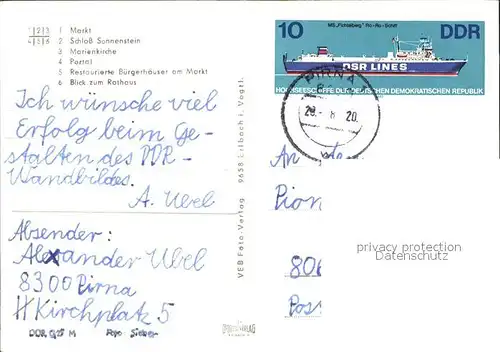 1|2|3 1 Markt
4|5|6 2 Schloß Sonnenstein
3 Marienkirche
4 Portal
5 Restaurierte Bürgerhäuser am Markt
6 Blick zum Rathaus
MS „Fichtelberg" Ro-Ro-Schiff
10 DDR
DSR LINES
HOCHSEESCHIFFE DER DEUTSCHEN DEMOKRATISCHEN REPUBLIK
PIRNA
Ich wünsche viel
Erfolg beim Ge-
stalten des DDR-
Wandbildes.
A. Ubel
Absender:
Alexander Ubel
8300 Pirna
H Kirchplatz 5
VEB Foto-Verlag 9658 Erlbach i. Vogtl.
An
Pion
806
Pos
privacy protection
Datenschutz